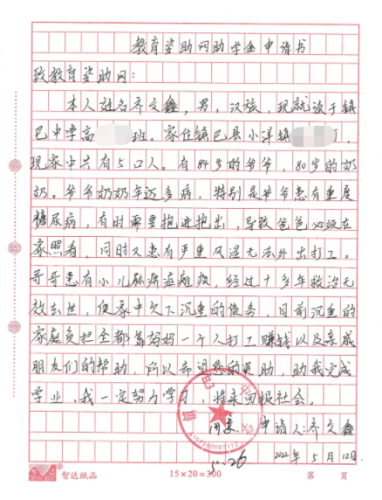 教育资助网助学金申请书
致教育资助网：
本人姓名齐文鑫，男，汉族，现就读于镇
巴中学高 班。家住镇巴县小洋镇
现家中共有5口人。有84岁的爷爷，80岁的奶
奶。爷爷奶奶年迈多病，特别是爷爷患有重度
糖尿病，有时需要抱进抱出，导致爸爸必须在
家照看，同时又患有严重风湿无法外出打工。
哥哥患有小儿脑病遗难级，经过十多年救治无
效去世，使家中欠下沉重的债务，目前沉重的
家庭负担全都靠妈妈一个人打工赚钱以及亲戚
朋友们的帮助，所以希望您的资助，助我完成
学业，我一定努力学习，将来回报社会。
同意 申请人：齐文鑫
5.26 2022年5月12日
智达纸品 15×20=300 第 页